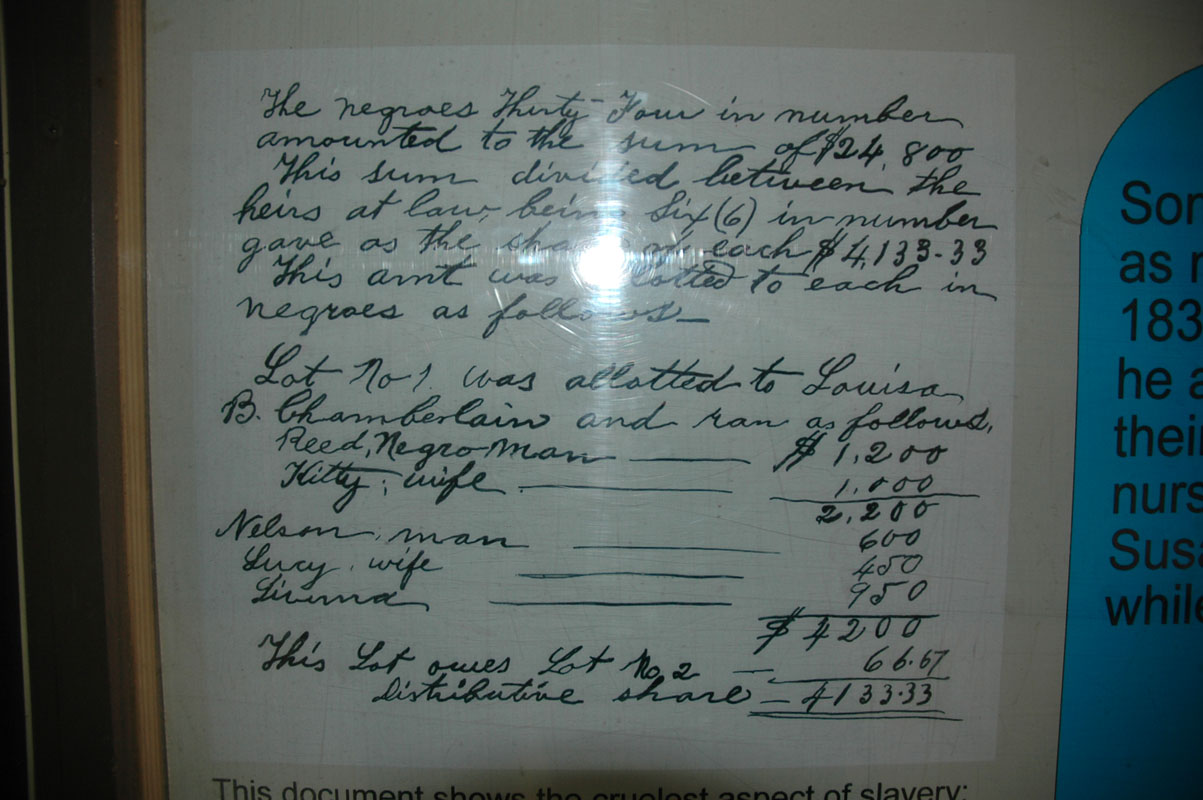 The negroes Thirty-Four in number
amounted to the sum of $24,800
This sum divided between the
heirs at law, being Six (6) in number
gave as the share of each $4,133.33
This amt was allotted to each in
negroes as follows—
Lot No 1 was allotted to Louisa
B. Chamberlain and ran as follows,
Reed, Negro Man — $1,200
Kitty, wife — 1,000
2,200
Nelson, man — 600
Lucy, wife — 450
— 950
$4200
This Lot owes Lot No 2 — 66.67
Distributive share — 4133.33
This document shows the cruelest aspect of slavery:
as
183
he a
their
nurs
Susa
while